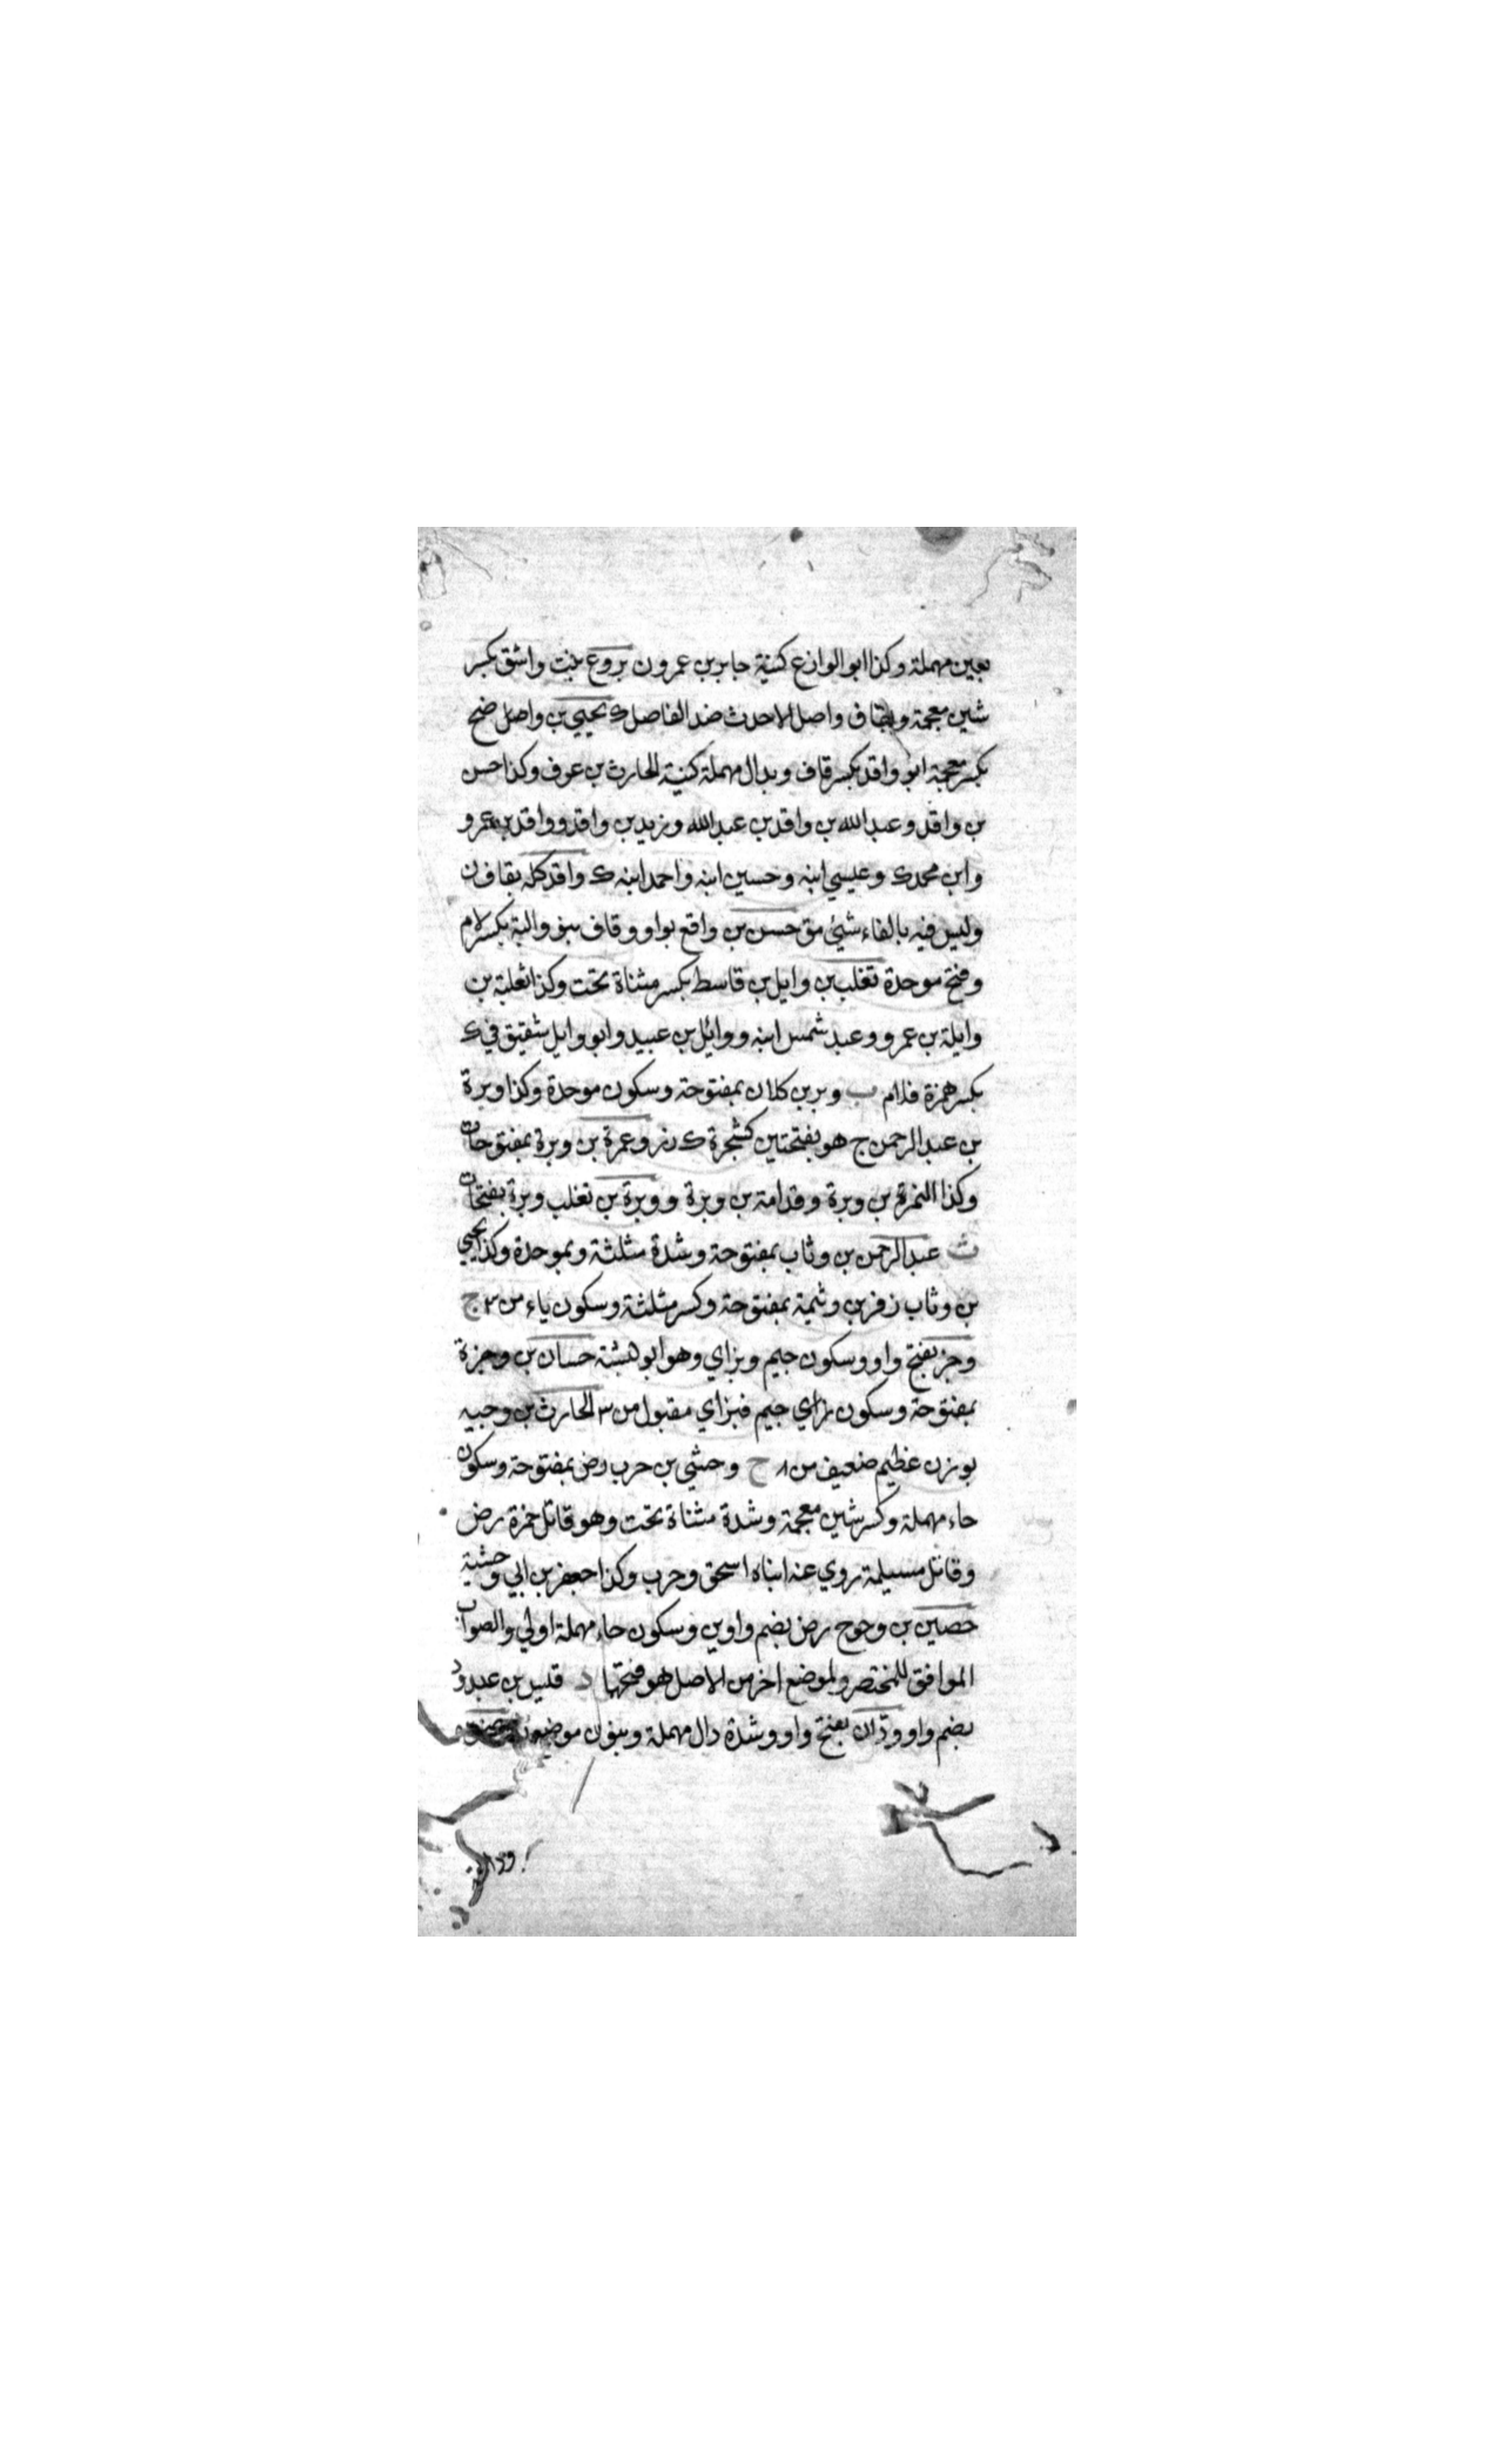 بعين مهملة وكذا ابو الوازع كنية جابر بن عمرو ن بروع بنت واشق بكسر
شين معجمة وبقاف واصل الاحدث ضد الفاصل ك يحيي بن واصل ضح
بكسر معجمة ابو واقد بكسر قاف وبدال مهملة كنية الحارث بن عوف وكذا حسن
بن واقد وعبد الله بن واقد بن عبد الله وزيد بن واقد وواقد بن عمرو
وابن محمد ك وعيسي ابنه وحسين ابنه واحمد ابنه ك واقد كله بقاف ن
وليس فيه بالفاء شيئ مق حسن بن واقع بواو وقاف بنو والبة بكسر لام
وفتح موحدة تغلب بن وايل بن قاسط بكسر مثناة تحت وكذا ثعلبة بن
وايلة بن عمرو وعبد شمس ابنه ووائل بن عبيد وابو وايل شقيق في ك
بكسر همزة فلام ب وبر بن كلان بمفتوحة وسكون موحدة وكذا وبرة
بن عبد الرحمن ج هو بفتحتين كشجرة ك نر وعمرة بن وبرة بمفتوحات
وكذا النمرة بن وبرة وقدامة بن وبرة ووبرة بن تغلب وبرة بفتحات
ث عبد الرحمن بن وثاب بمفتوحة وشدة مثلثة وبموحدة وكذا يحيي
بن وثاب زفر بن وثيمة بمفتوحة وكسر مثلثة وسكون ياء من ٣ ج
وجز بفتح واو وسكون جيم وبزاي وهو ابو هشة حسان بن وجزة
بمفتوحة وسكون زاي جيم فبزاي مقبول من ٣ الحارث بن وجيه
بوزن عظيم ضعيف من ٨ ح وحشي بن حرب رض بمفتوحة وسكون
حاء مهملة وكسر شين معجمة وشدة مثناة تحت وهو قاتل حمزة رض
وقاتل مسيلمة روي عنه ابناه اسحق وحرب وكذا جعفر بن ابي وحشية
حصين بن وحوح رض بضم واوين وسكون حاء مهملة اولي والصواب
الموافق للمختصر ولموضع اخر من الاصل هو فتحتها د قيس بن عبد ود
بضم واو وودان بفتح واو وشدة دال مهملة وبنون